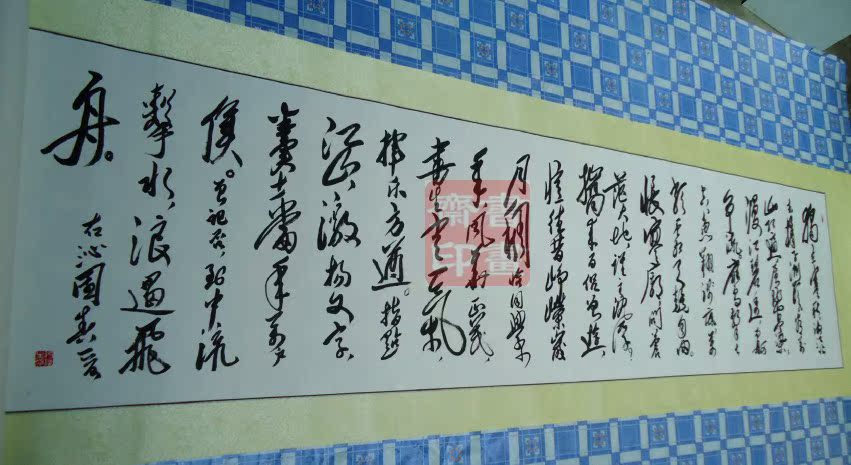 獨立寒秋湘江北
去橘子洲頭看萬
山紅遍層林盡染
漫江碧透百舸
爭流鷹擊長空
魚翔淺底萬
類霜天競自由
悵寥廓問蒼
茫大地誰主沉浮
攜來百侶曾遊
憶往昔崢嶸歲
月稠恰同學少
年風華正茂,
書生意氣,
揮斥方遒。指點
江山,激揚文字,
糞土當年萬戶
侯。曾記否,到中流
擊水,浪遏飛
舟。
沁園春
書畫
齋印